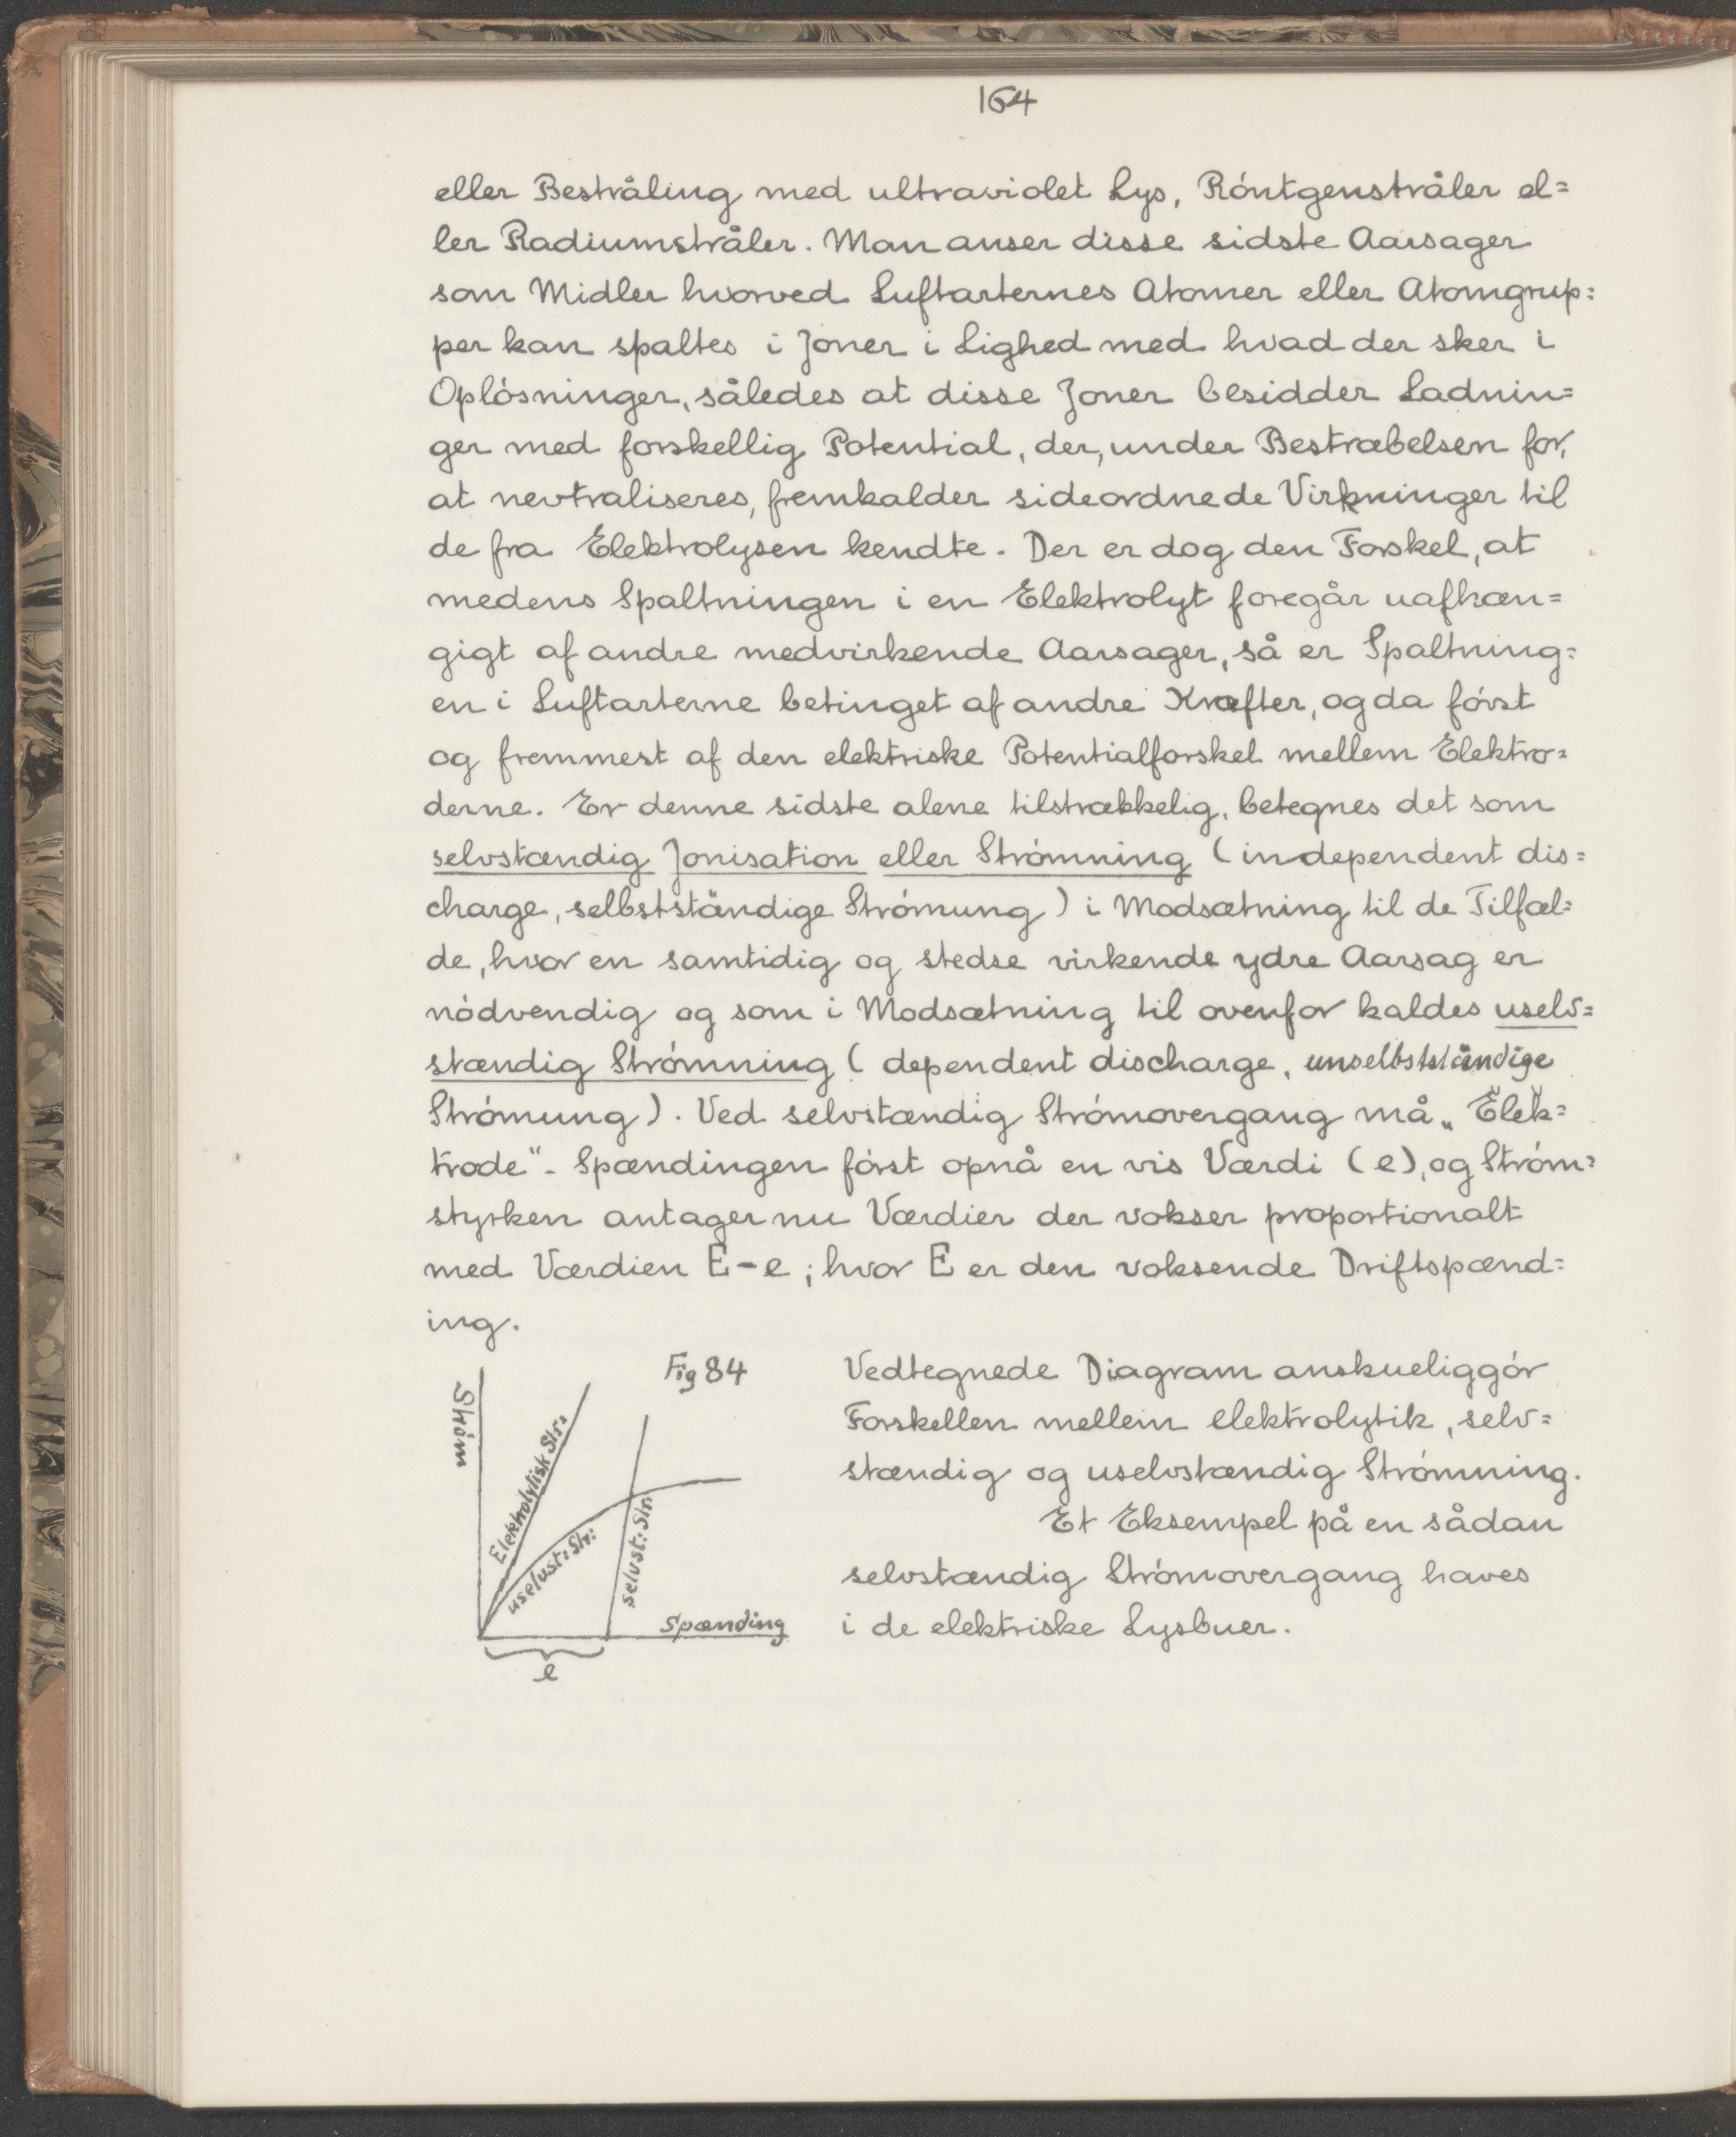 164
eller Bestråling med ultraviolet Lys, Röntgenstråler el=
ler Radiumstråler. Man anser disse sidste Aarsager
som Midler hvorved Luftarternes Atomer eller Atomgrup=
per kan spaltes i Joner i Lighed med hvad der sker i
Oplósninger, således at disse Joner besidder Ladnin=
ger med forskellig Potential, der, under Bestræbelsen for,
at nevtraliseres, fremkalder sideordnede Virkninger til
de fra Elektrolysen kendte. Der er dog den Forskel, at
medens Spaltningen i en Elektrolyt foregår uafhæn=
gigt af andre medvirkende Aarsager, så er Spaltning=
en i Luftarterne betinget af andre Kræfter, og da fórst
og fremmest af den elektriske Potentialforskel mellem Elektro=
derne. Er denne sidste alene tilstrækkelig, betegnes det som
selvstændig Jonisation eller Strómning (independent dis=
charge, selbstständige Strómung) i Modsætning til de Tilfæl=
de, hvor en samtidig og stedse virkende ydre Aarsag er
nódvendig og som i Modsætning til ovenfor kaldes uselv=
stændig Strómning (dependent discharge, unselbstständige
Strómung). Ved selvstændig Strómovergang må „Elek=
trode"- Spændingen fórst opnå en vis Værdi (e), og Stróm=
styrken antager nu Værdier der vokser proportionalt
med Værdien E-e; hvor E er den voksende Driftspænd=
ing.
Fig 84
Strøm
Elektrolytisk Str:
uselvst: Str:
selvst: Str:
Spænding
e
Vedtegnede Diagram anskueliggór
Forskellen mellem elektrolytik, selv=
stændig og uselvstændig Strómning.
Et Eksempel på en sådan
selvstændig Strómovergang haves
i de elektriske Lysbuer.